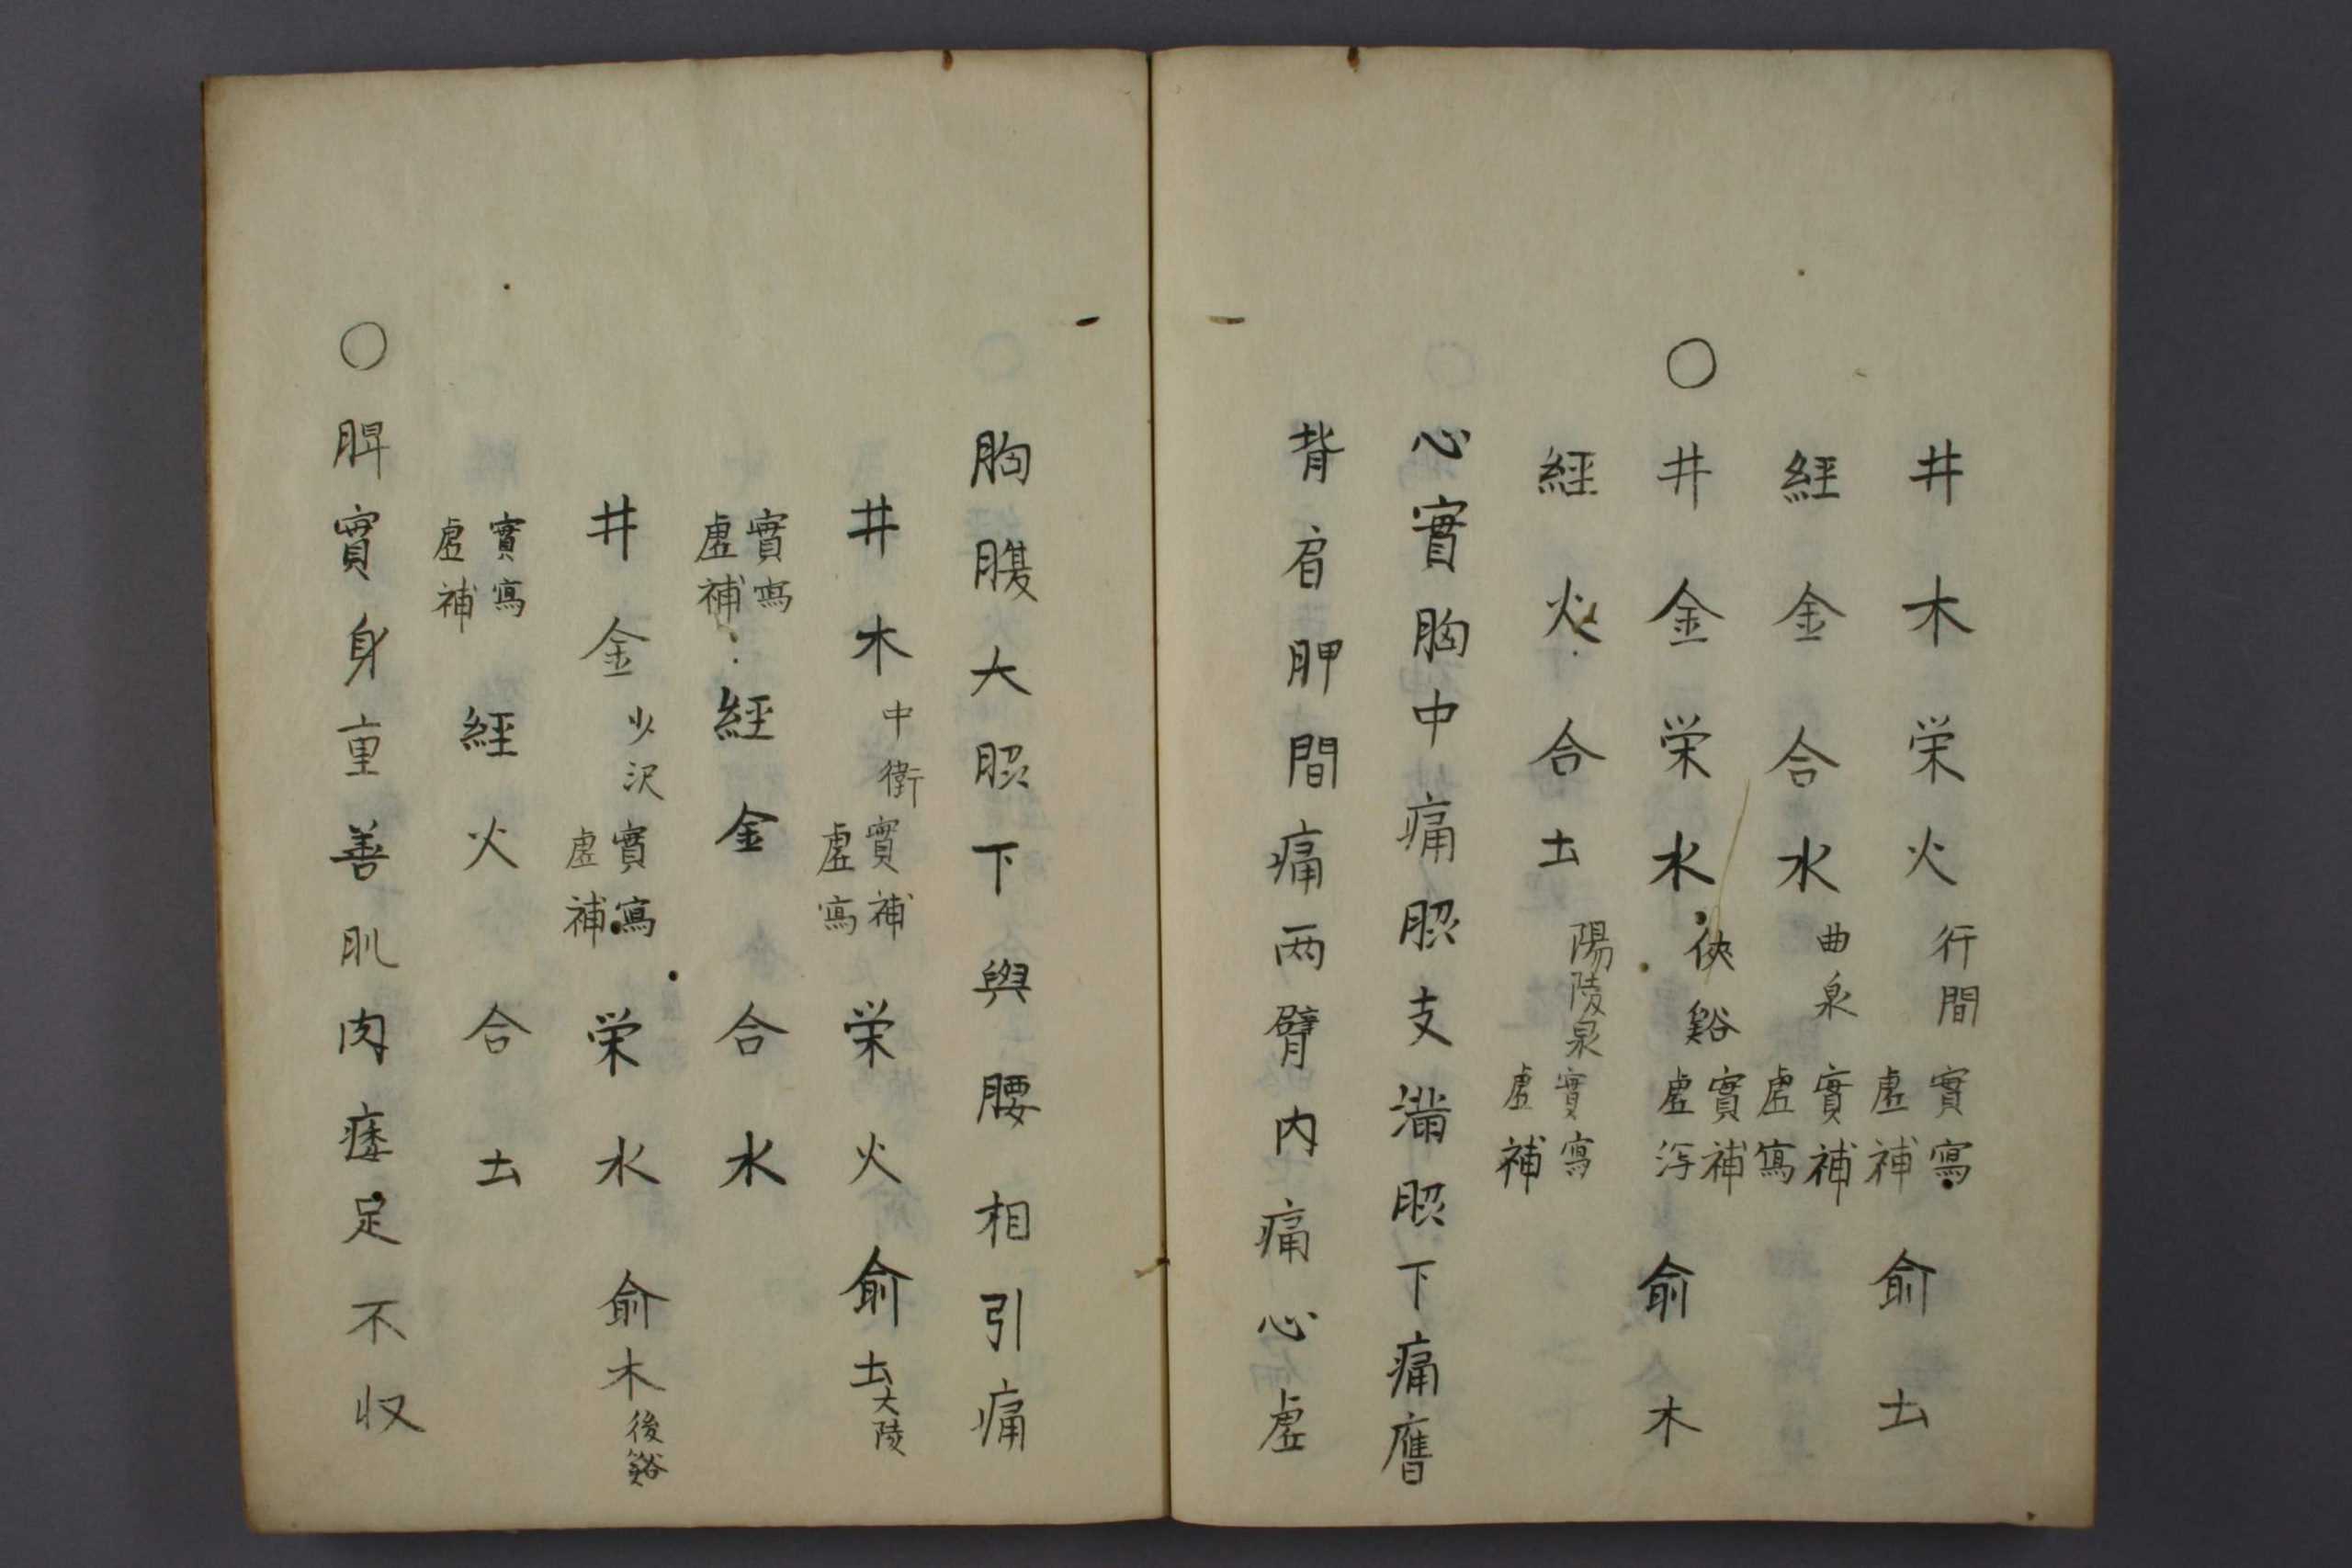 井木栄火行間實寫虛補俞土
經金合水曲泉實補虛寫
○井金栄水俠谿實補虛泻俞木
經火合土陽陵泉實寫虛補
心實胸中痛脇支滿脇下痛膺
背肩胛間痛两臂内痛心虛
胸腹大脇下與腰相引痛
井木中衝實補虛寫栄火俞土大陵
實寫虛補經金合水
井金少沢實寫虛補栄水俞木後谿
實寫虛補經火合土
○脾實身重善肌肉痿足不収